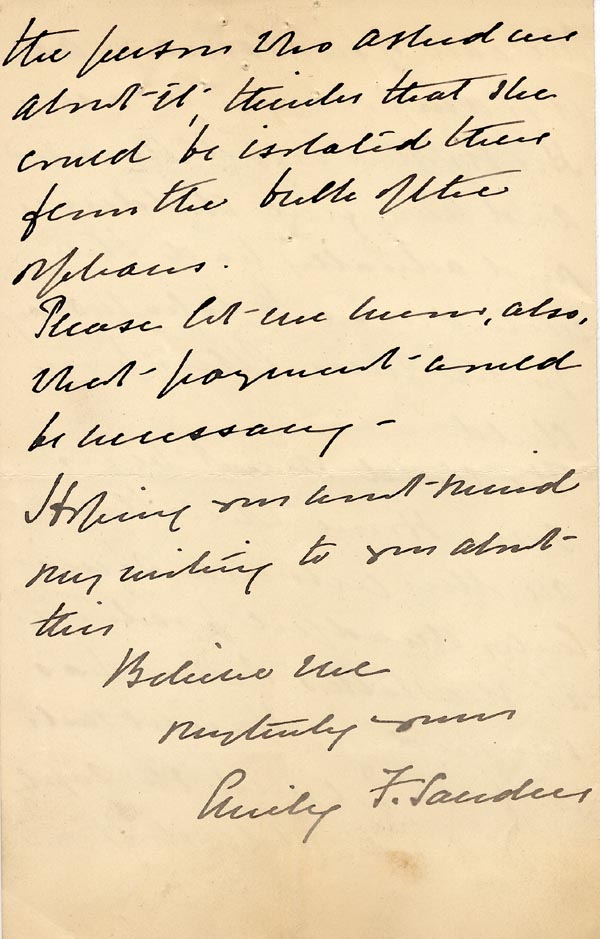 the person who asked me
about it, thinks that she
could be isolated there
from the bulk of the
orphans.
Please let me know, also,
what payment would
be necessary -
Hoping you won't mind
my writing to you about
this
Believe me
very truly yours
Emily F. Sanders